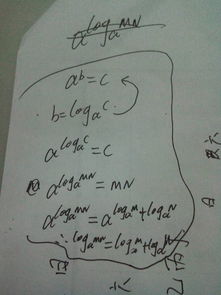 a^{log_a MN}
a^b = c
b = log_a c
a^{log_a c} = c
a^{log_a MN} = MN
a^{log_a MN} = a^{log_a M + log_a N}
∴ log_a MN = log_a M + log_a N